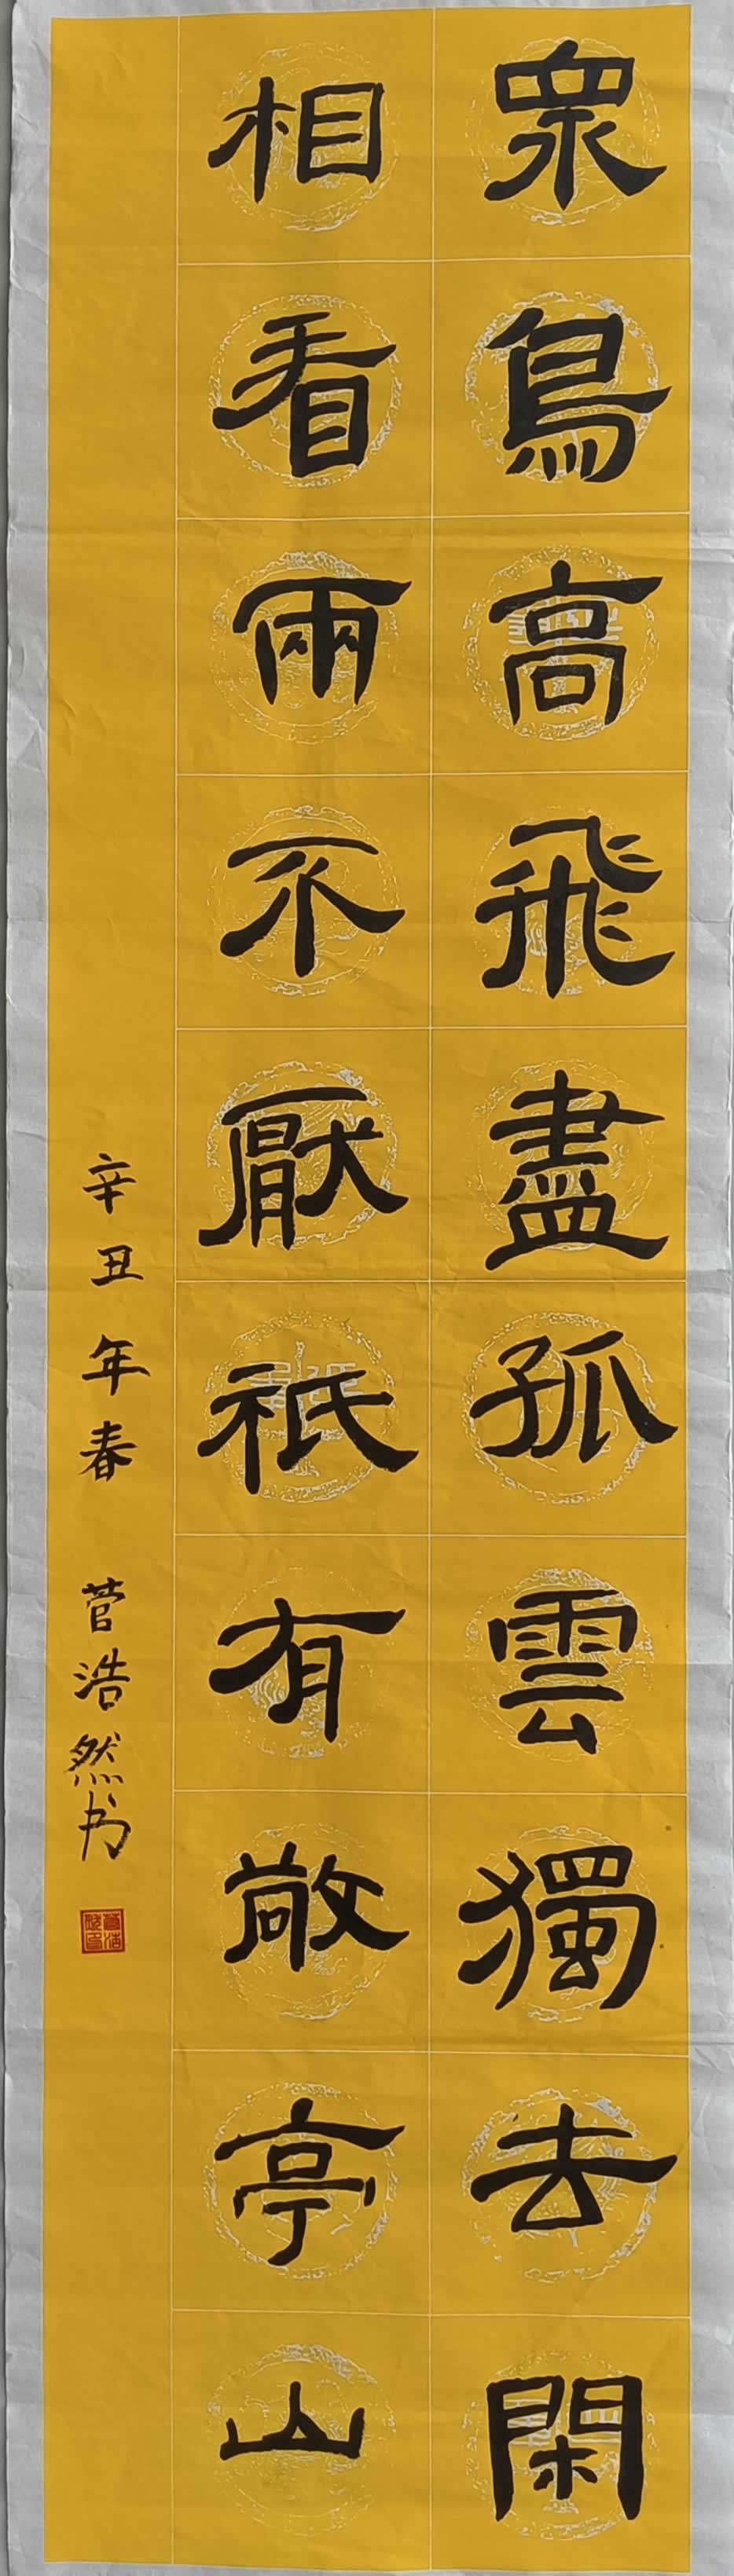 眾鳥高飛盡孤雲獨去閑
相看兩不厭祇有敬亭山
辛丑年春 菅浩然书